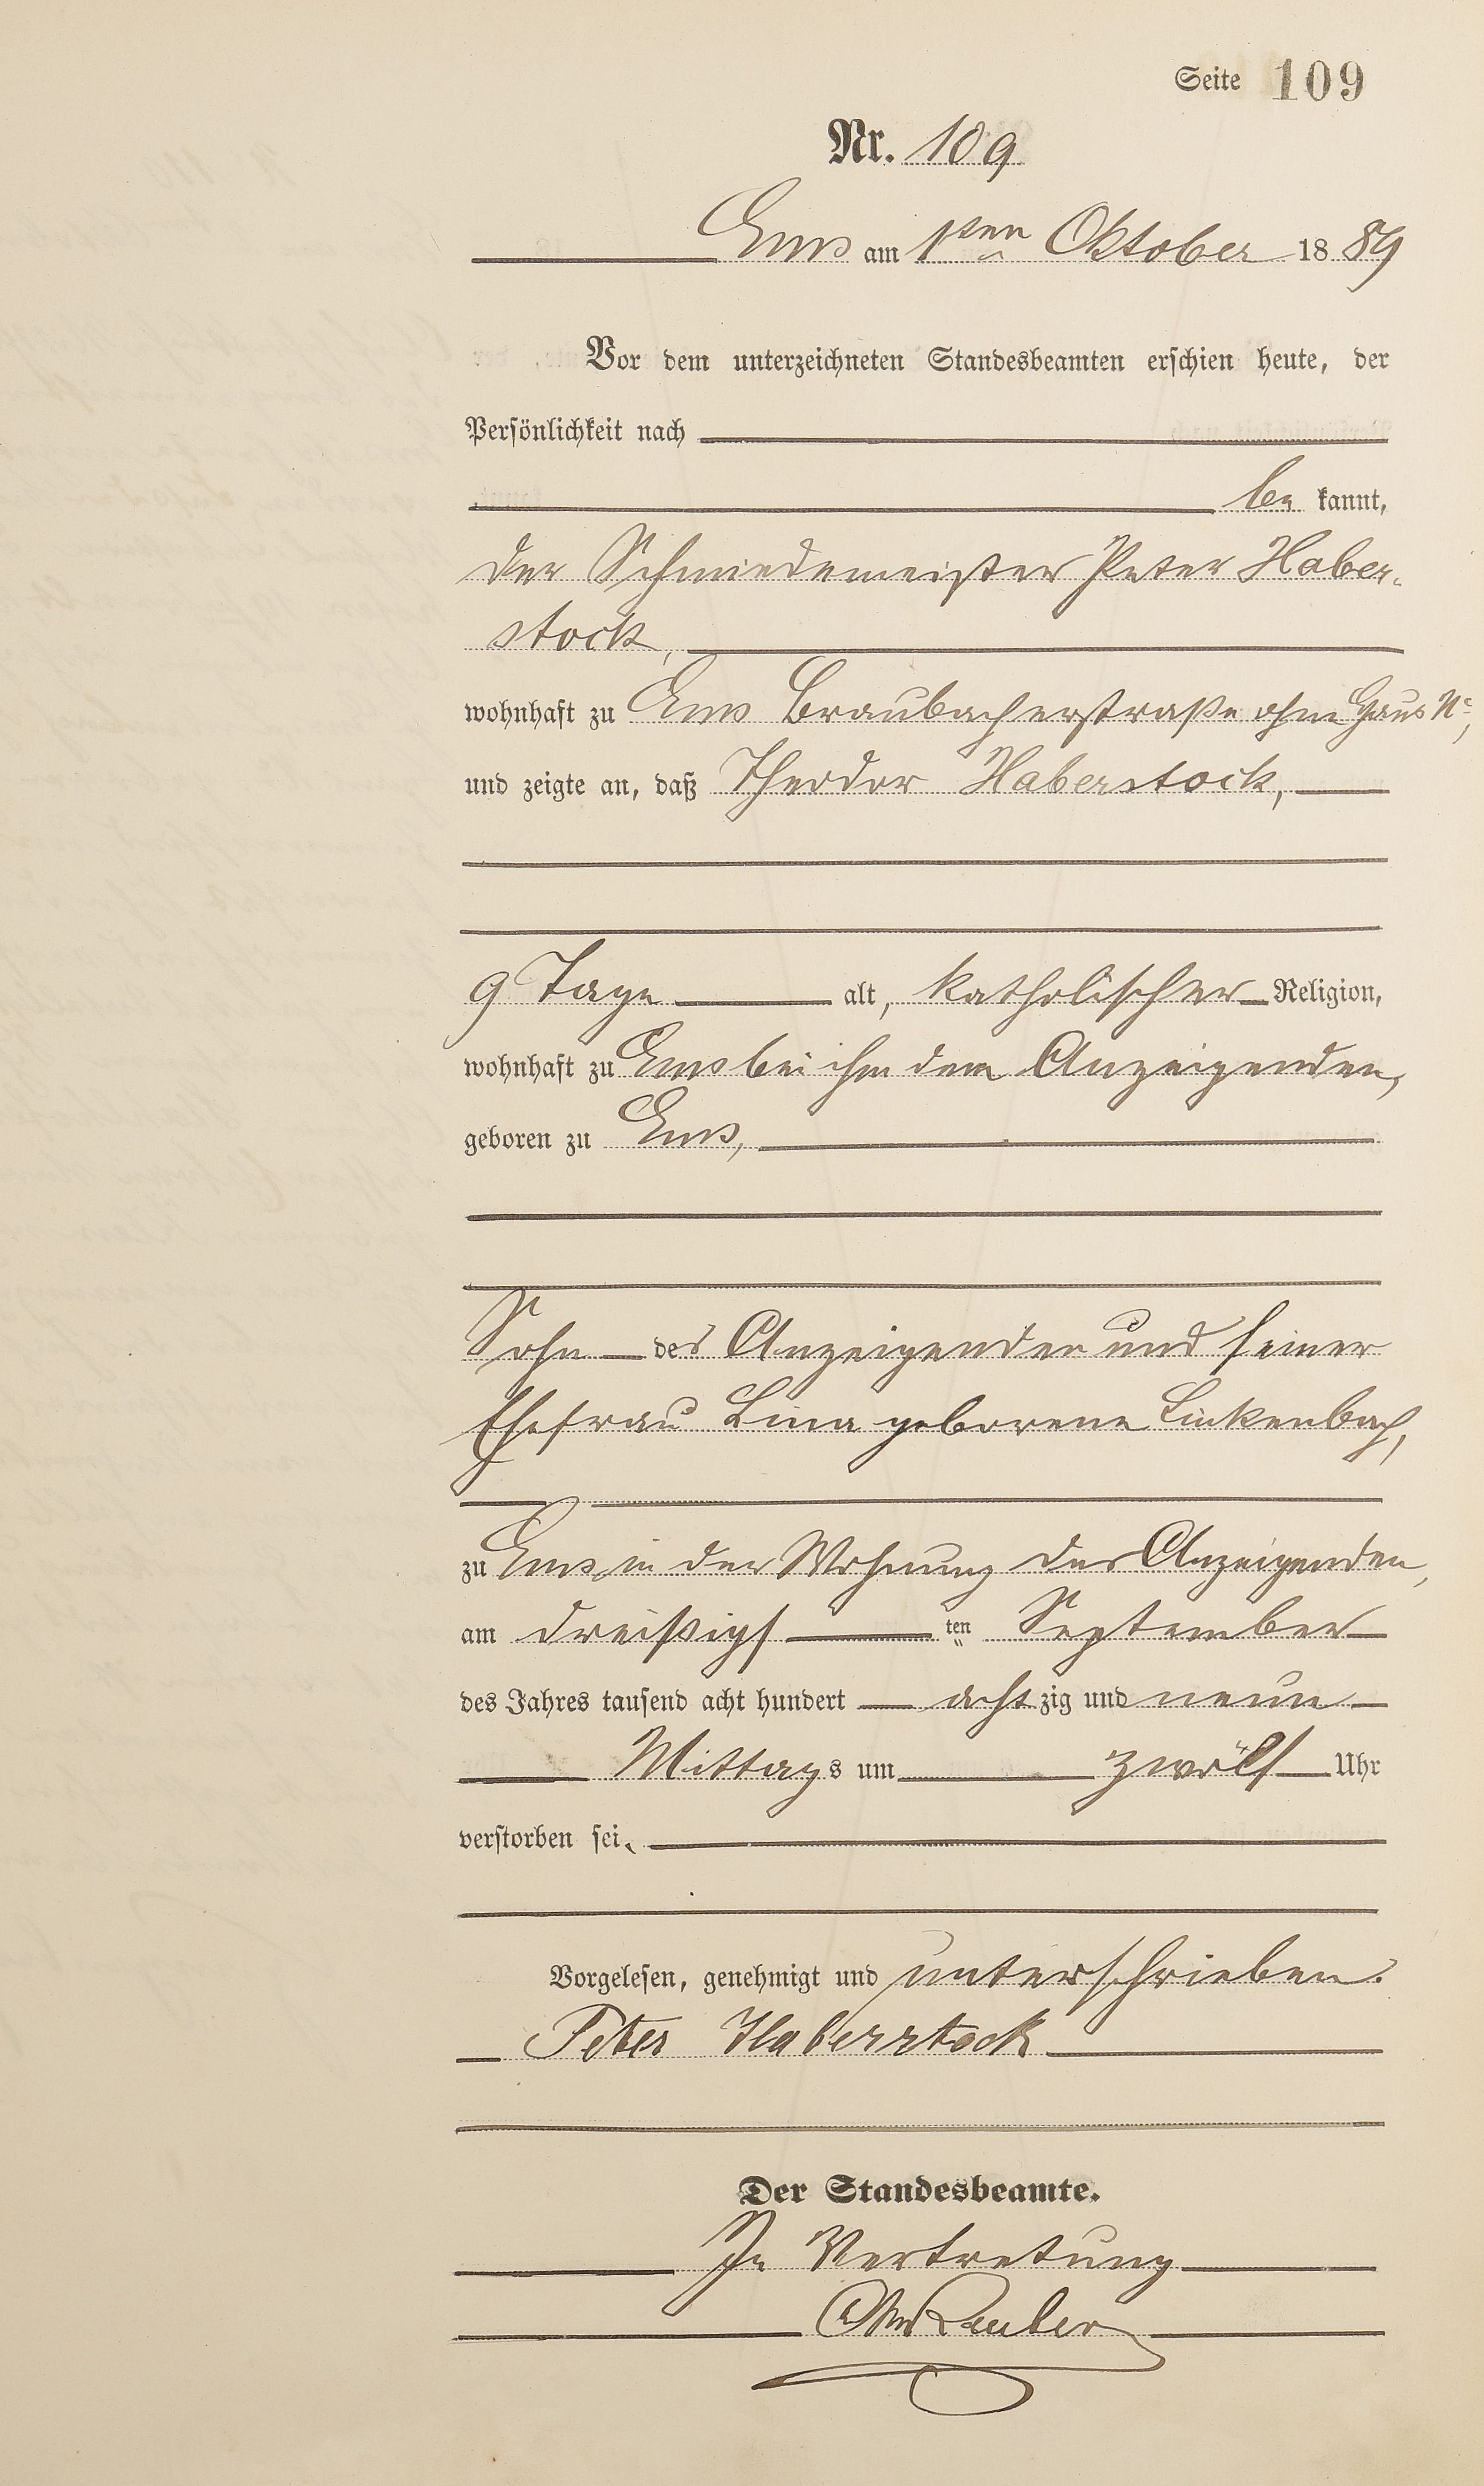 Seite 109
Nr. 109
Ems am 1sten Oktober 1889
Vor dem unterzeichneten Standesbeamten erschien heute, der
Persönlichkeit nach
be kannt,
der Schmiedemeister Peter Haber-
stock,
wohnhaft zu Ems Braubacherstraße ohne Haus Nº,
und zeigte an, daß Theodor Haberstock,
9 Tage alt, katholischer Religion,
wohnhaft zu Ems bei ihm dem Anzeigenden,
geboren zu Ems,
Sohn des Anzeigenden und seiner
Ehefrau Lina geborene Linkenbach,
zu Ems, in der Wohnung des Anzeigenden,
am dreißigsten September
des Jahres tausend acht hundert achtzig und neun
Mittags um zwölf Uhr
verstorben sei.
Vorgelesen, genehmigt und unterschrieben.
Peter Haberstock
Der Standesbeamte.
In Vertretung